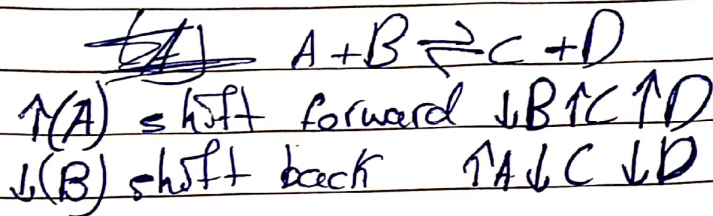 A + B ⇌ C + D
↑(A) shift forward ↓B↑C↑D
↓(B) shift back ↑A↓C↓D